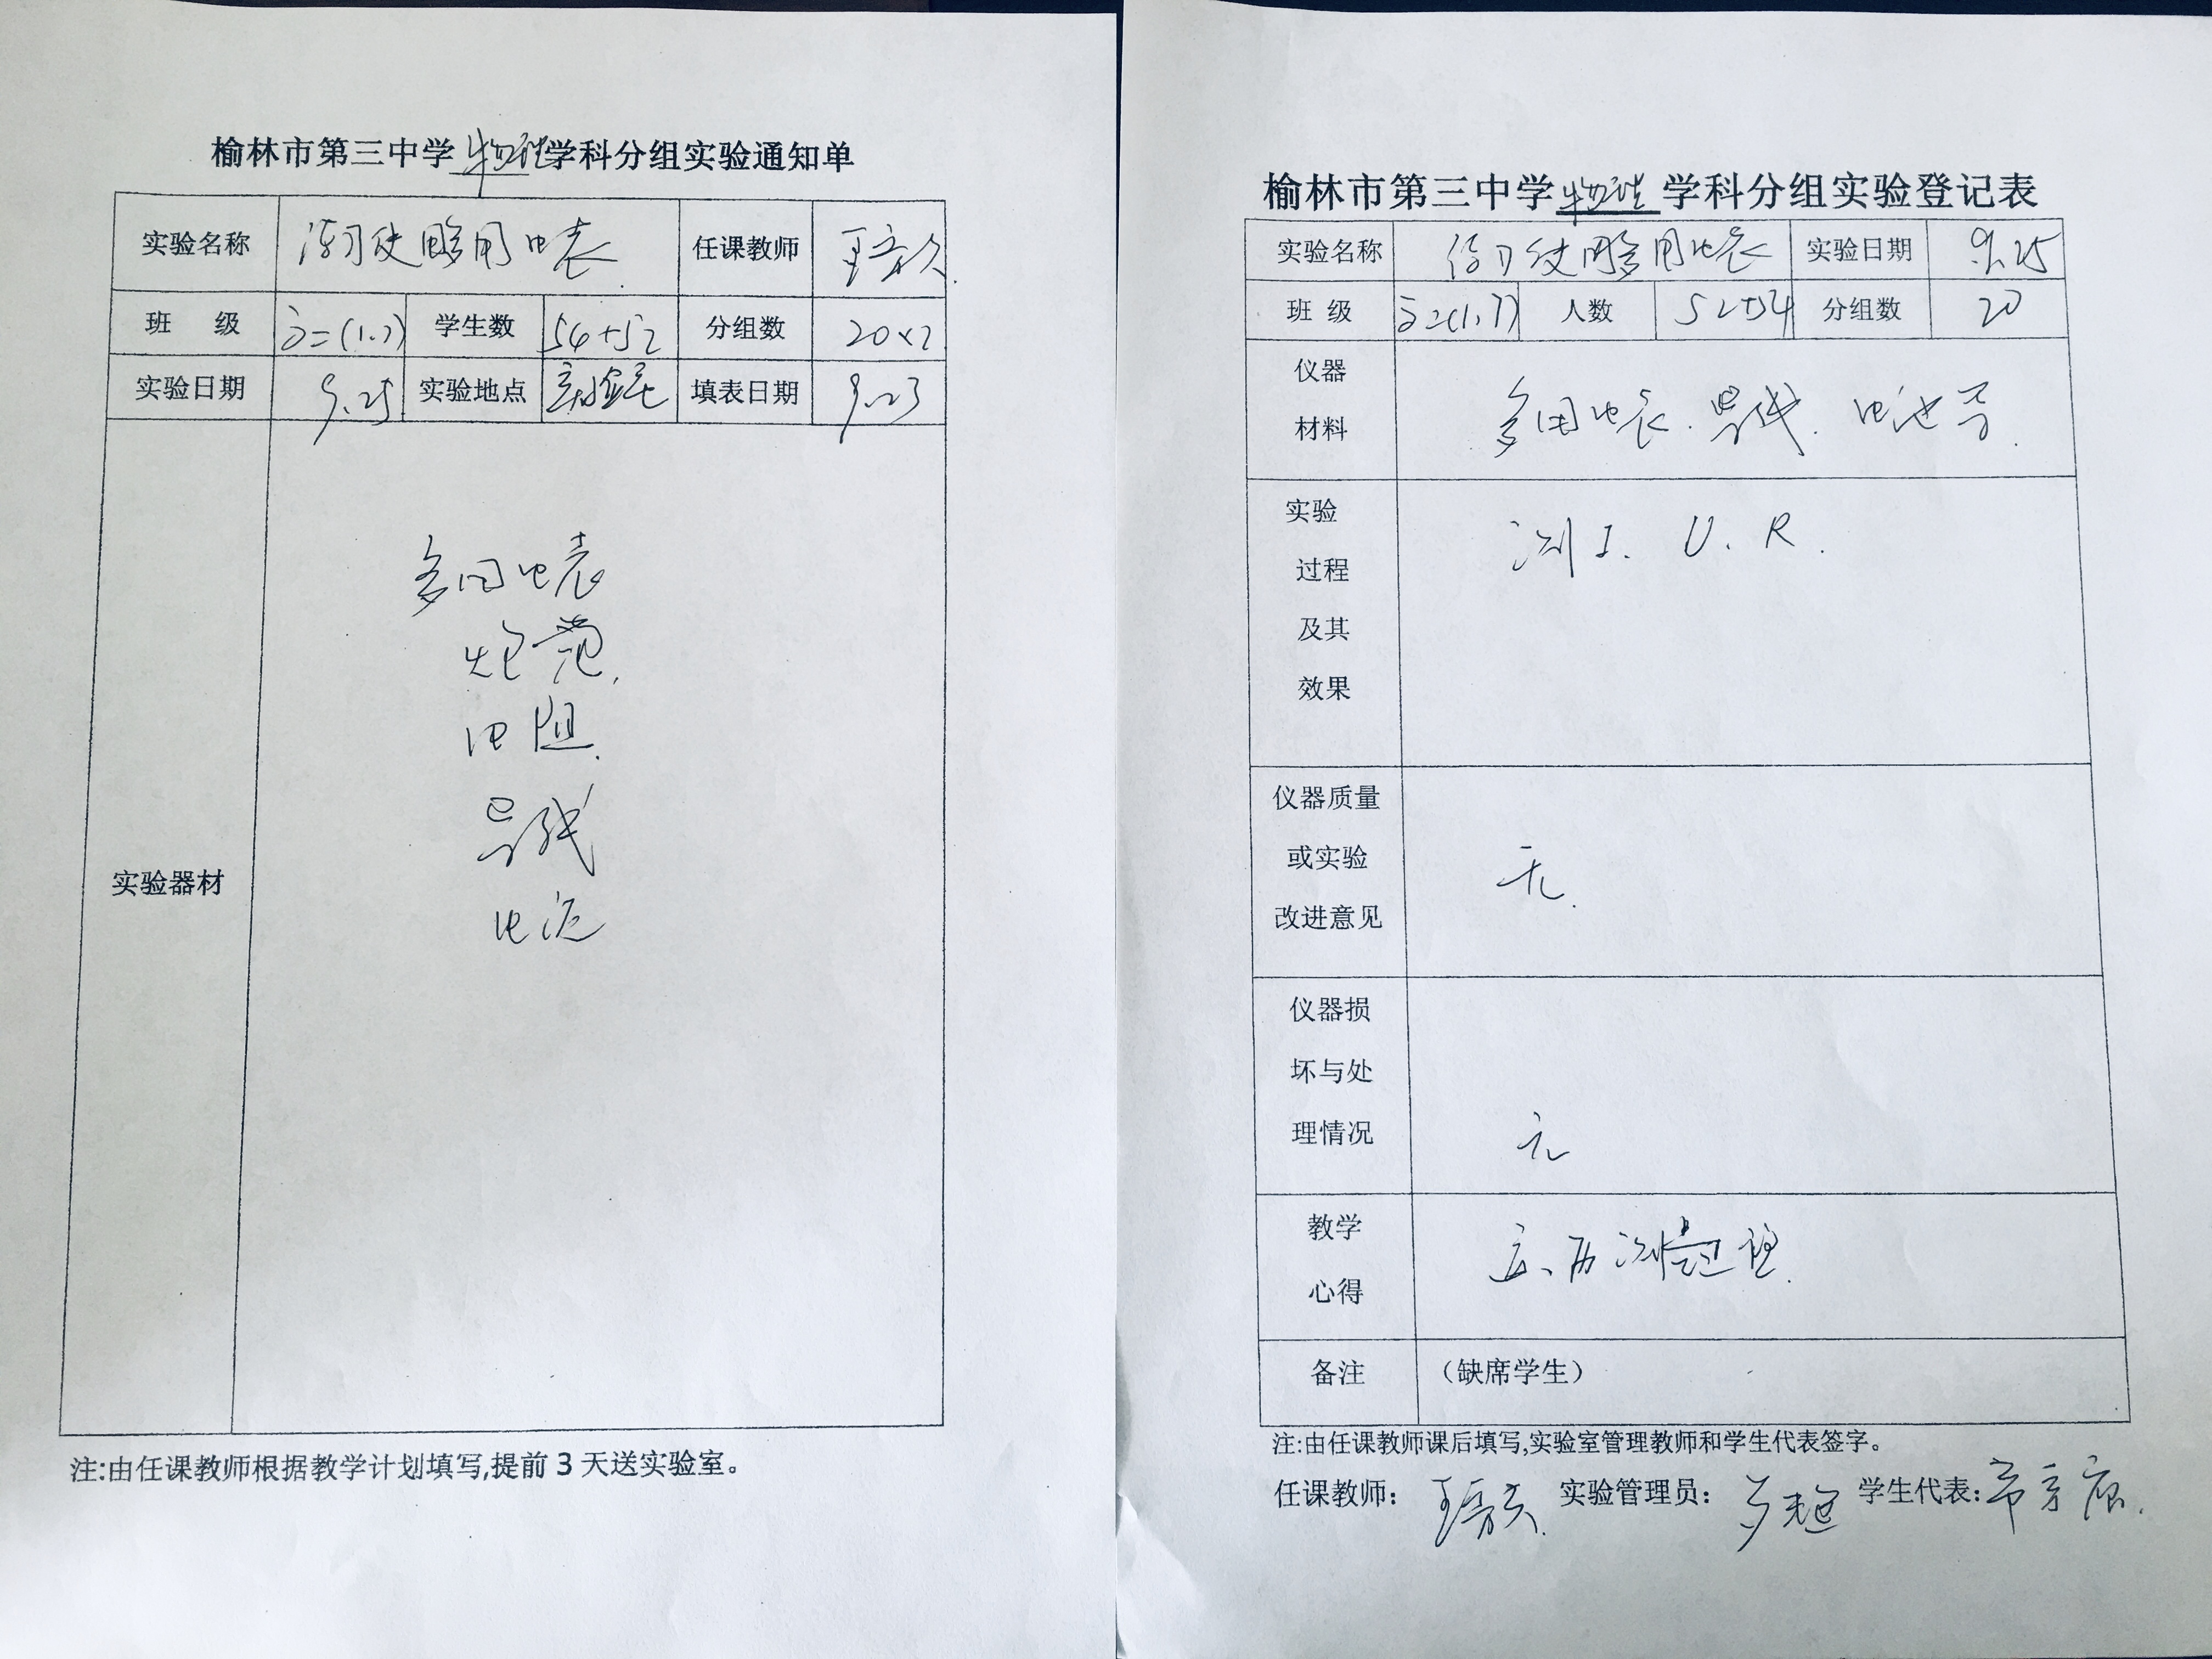 榆林市第三中学物理学科分组实验通知单
实验名称 练习使用多用电表 任课教师
班 级 高二(1.7) 学生数 54+52 分组数 20×2
实验日期 9.25 实验地点 实验室 填表日期 9.23
实验器材
多用电表
电阻
导线
电池
注:由任课教师根据教学计划填写,提前3天送实验室。
榆林市第三中学物理学科分组实验登记表
实验名称 练习使用多用电表 实验日期 9.25
班 级 高二(1.7) 人数 52+54 分组数 20
仪器
材料
多用电表.导线.电池等.
实验
过程
及其
效果
测I.U.R.
仪器质量
或实验
改进意见
无.
仪器损
坏与处
理情况
无
教学
心得
备注 (缺席学生)
注:由任课教师课后填写,实验室管理教师和学生代表签字。
任课教师: 实验管理员: 学生代表: